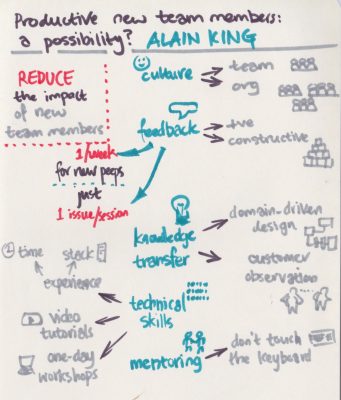 Productive new team members:
a possibility? ALAIN KING
REDUCE
the impact
of new
team members
culture
team
org
feedback
+ve
constructive
1/week
for new peeps
just
1 issue/session
knowledge
transfer
domain-driven
design
customer
observation
technical
skills
time
stack
experience
video
tutorials
one-day
workshops
mentoring
don't touch
the keyboard